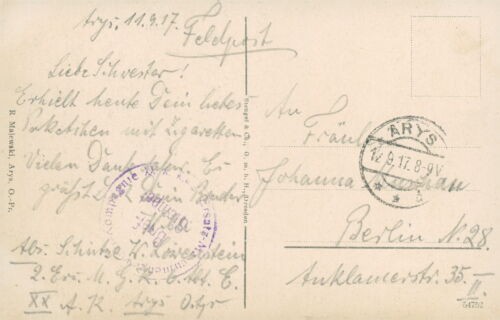 Arys, 11.9.17.
Feldpost
Liebe Schwester!
Erhielt heute Dein liebes
Paketchen mit Zigaretten
Vielen Dank dafür. Es
grüßt Dein Bruder
Abs. Schütze W. Löwenstein
2. Ers. M. G. K.
XX A. K. Arys Ostpr
R. Malewski, Arys, O.-Pr.
Stengel & Co., G. m. b. H., Dresden
An
Fräul.
Johanna
Berlin N. 28.
Anklamerstr. 35.
II.
ARYS
12.9.17. 8-9V.
64792